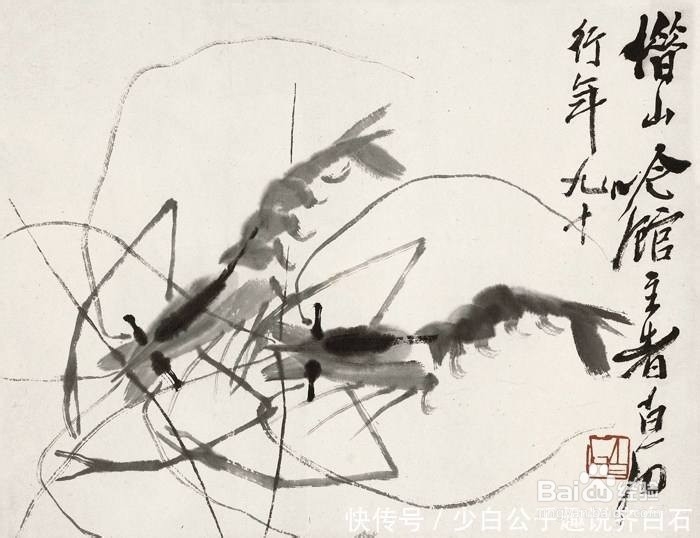 借山吟館主者白石
行年九十
Baidu 经验
快传号 / 少白公子趣说齐白石